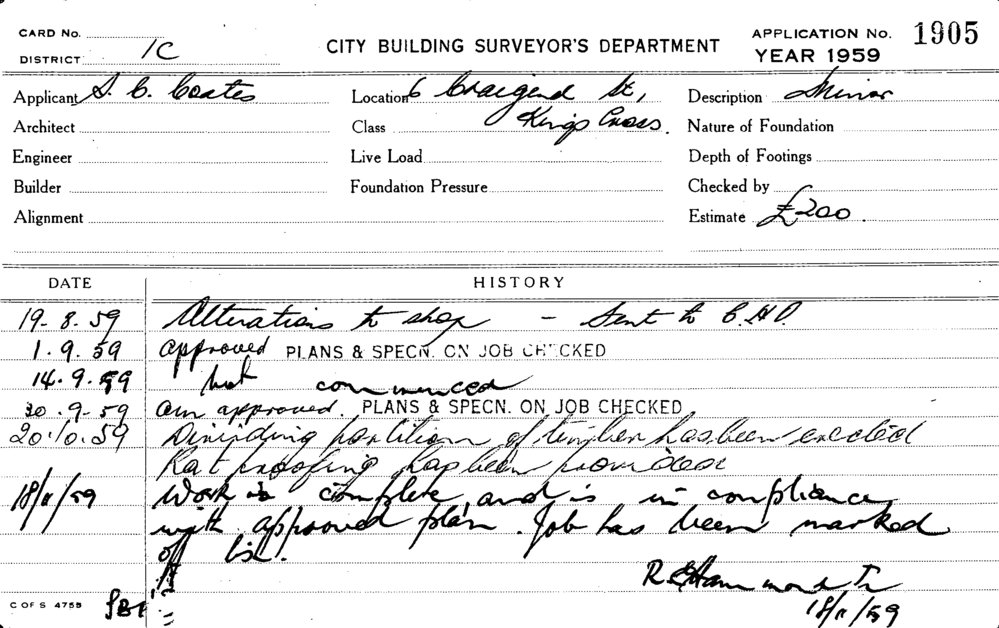 CARD No.
DISTRICT 1C
CITY BUILDING SURVEYOR'S DEPARTMENT
APPLICATION No. 1905
YEAR 1959
Applicant S. C. Coates
Location 6 Craigend St,
Description Minor
Architect
Class Kings Cross.
Nature of Foundation
Engineer
Live Load
Depth of Footings
Builder
Foundation Pressure
Checked by
Alignment
Estimate £200.
DATE HISTORY
19-8.59 Alterations to shop - Sent to C.H.O.
1.9.59 approved PLANS & SPECN. ON JOB CHECKED
14.9.59 Not commenced
30.9-59 am approved. PLANS & SPECN. ON JOB CHECKED
20.10.59 Dividing partition of timber has been erected
Rat proofing has been provided
18/11/59 Work is complete and is in compliance
with approved plan. Job has been marked
off list.
R Hammond
18/11/59
C OF S 4755